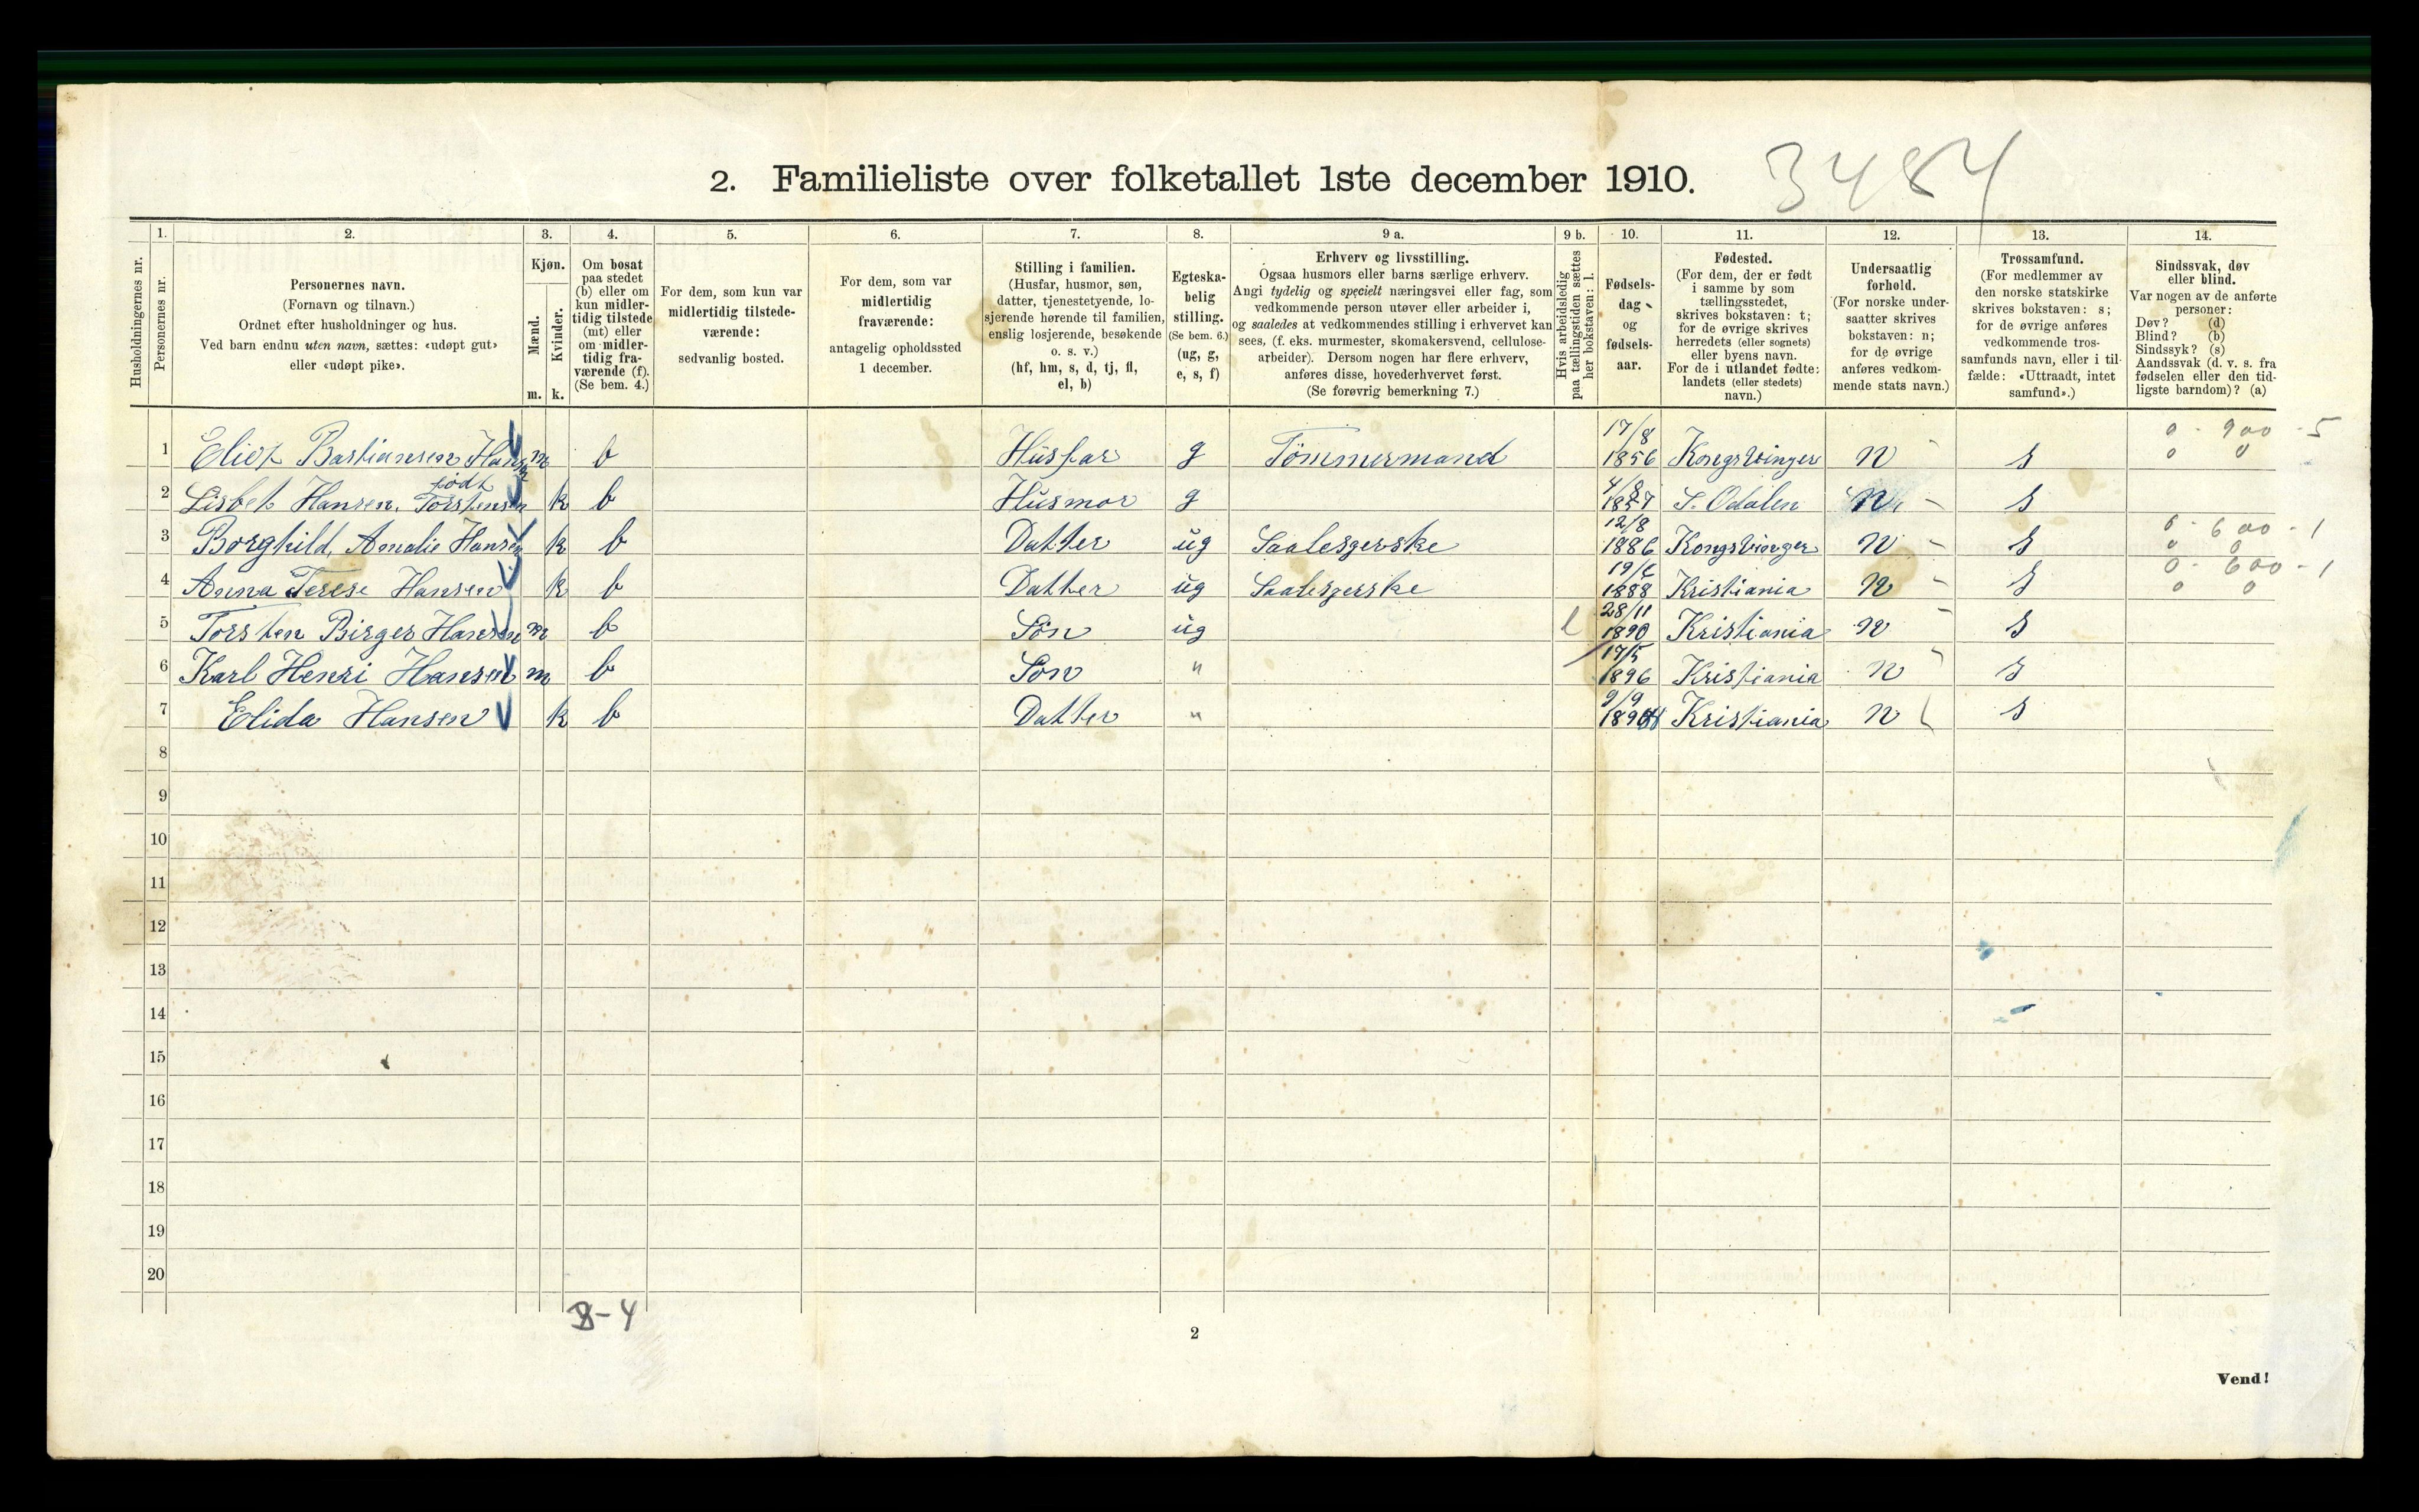 2. Familieliste over folketallet 1ste december 1910.
3484
1. 2. 3. 4. 5. 6. 7. 8. 9 a. 9 b. 10. 11. 12. 13. 14.
Husholdningernes nr.
Personernes nr.
Personernes navn.
(Fornavn og tilnavn.)
Ordnet efter husholdninger og hus.
Ved barn endnu uten navn, sættes: «udøpt gut»
eller «udøpt pike».
Kjøn.
Mænd.
Kvinder.
m. k.
Om bosat
paa stedet
(b) eller om
kun midler-
tidig tilstede
(mt) eller
om midler-
tidig fra-
værende (f).
(Se bem. 4.)
For dem, som kun var
midlertidig tilstede-
værende:
sedvanlig bosted.
For dem, som var
midlertidig
fraværende:
antagelig opholdssted
1 december.
Stilling i familien.
(Husfar, husmor, søn,
datter, tjenestetyende, lo-
sjerende hørende til familien,
enslig losjerende, besøkende
o. s. v.)
(hf, hm, s, d, tj, fl,
el, b)
Egteska-
belig
stilling.
(Se bem. 6.)
(ug, g,
e, s, f)
Erhverv og livsstilling.
Ogsaa husmors eller barns særlige erhverv.
Angi tydelig og specielt næringsvei eller fag, som
vedkommende person utøver eller arbeider i,
og saaledes at vedkommendes stilling i erhvervet kan
sees, (f. eks. murmester, skomakersvend, cellulose-
arbeider). Dersom nogen har flere erhverv,
anføres disse, hovederhvervet først.
(Se forøvrig bemerkning 7.)
Hvis arbeidsledig
paa tællingstiden sættes
her bokstaven: l.
Fødsels-
dag
og
fødsels-
aar.
Fødested.
(For dem, der er født
i samme by som
tællingsstedet,
skrives bokstaven: t;
for de øvrige skrives
herredets (eller sognets)
eller byens navn.
For de i utlandet fødte:
landets (eller stedets)
navn.)
Undersaatlig
forhold.
(For norske under-
saatter skrives
bokstaven: n;
for de øvrige
anføres vedkom-
mende stats navn.)
Trossamfund.
(For medlemmer av
den norske statskirke
skrives bokstaven: s;
for de øvrige anføres
vedkommende tros-
samfunds navn, eller i til-
fælde: «Uttraadt, intet
samfund».)
Sindssvak, døv
eller blind.
Var nogen av de anførte
personer:
Døv? (d)
Blind? (b)
Sindssyk? (s)
Aandssvak (d. v. s. fra
fødselen eller den tid-
ligste barndom)? (a)
1 Bastiansen Hansen m b Husfar g Tømmermand 17/8 1856 Kongsvinger n s 0 - 900 - 5
0 0
2 Lisbet Hansen. født Torstensen k b Husmor g 1857 S. Odalen n s
3 Borghild, Amalie Hansen k b Datter ug Saalesyerske 12/8 1886 Kongsvinger n s 0 - 600 - 1
0 0
4 Anna Terese Hansen k b Datter ug Saalesyerske 1888 Kristiania n s 0 - 600 - 1
0 0
5 Torsten Birger Hansen m b Søn ug l 28/11 1890 Kristiania n s
6 Karl Henri Hansen m b Søn " 17/5 1896 Kristiania n s
7 Elida Hansen k b Datter " 9/9 Kristiania n s
8
9
10
11
12
13
14
15
16
17
18
19
20
B-4
2
Vend!